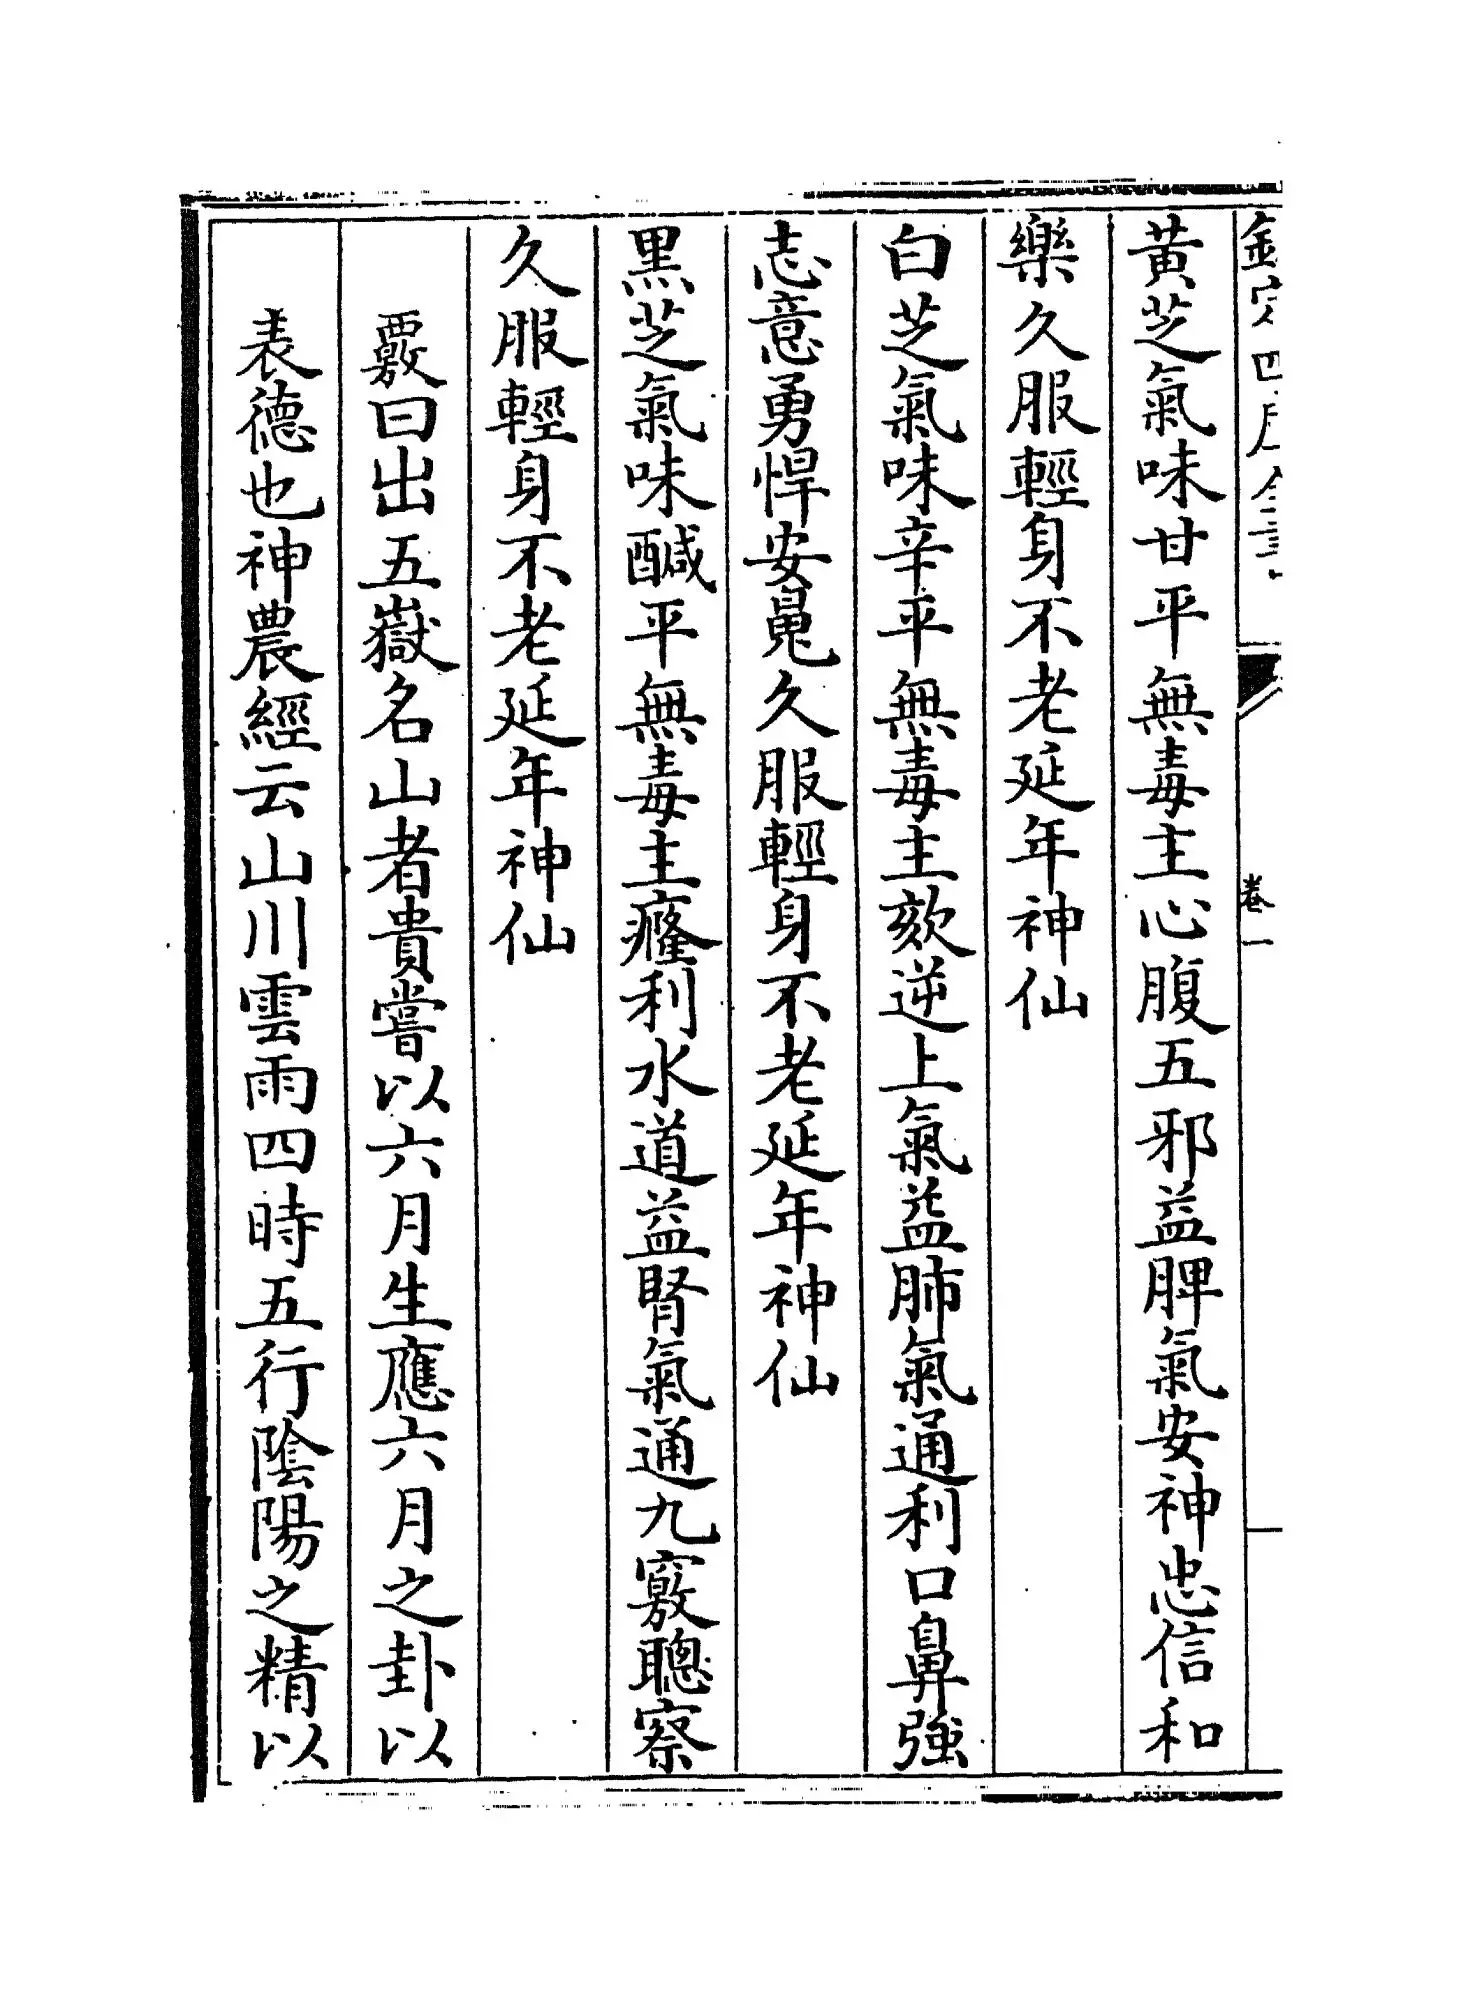 欽定四庫全書
卷一
黃芝氣味甘平無毒主心腹五邪益脾氣安神忠信和
樂久服輕身不老延年神仙
白芝氣味辛平無毒主欬逆上氣益肺氣通利口鼻強
志意勇悍安䰟久服輕身不老延年神仙
黑芝氣味醎平無毒主癃利水道益腎氣通九竅聰察
久服輕身不老延年神仙
覈曰出五嶽名山者貴嘗以六月生應六月之卦以
表德也神農經云山川雲雨四時五行隂陽之精以